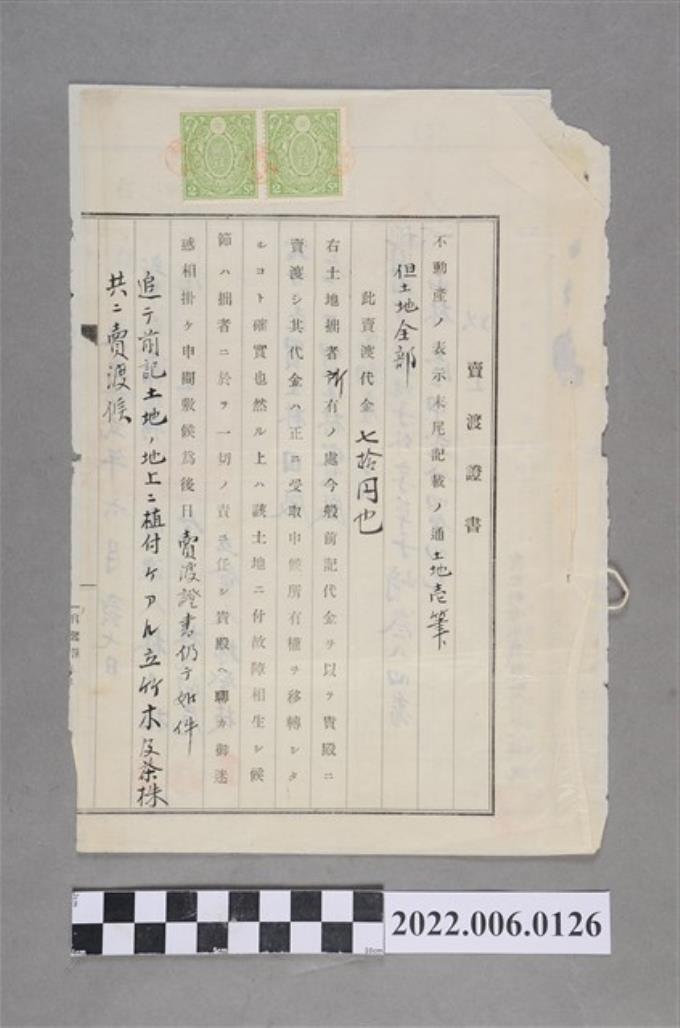 賣渡證書
不動產ノ表示末尾記載ノ通土地壱筆
但土地全部
此賣渡代金七拾円也
右土地拙者所有ノ處今般前記代金ヲ以ヲ貴殿ニ
賣渡シ其代金ハ正ニ受取申候所有權ヲ移轉シタ
ルコト確實也然ル上ハ該土地ニ付故障相生シ候
節ハ拙者ニ於ヲ一切ノ責ニ任シ貴殿ヘ聊カ御迷
惑相掛ケ申間敷候爲後日賣渡證書仍テ如件
追テ前記土地ノ地上ニ植付ケアル立竹木及茶株
共ニ賣渡候
2 2
2022.006.0126